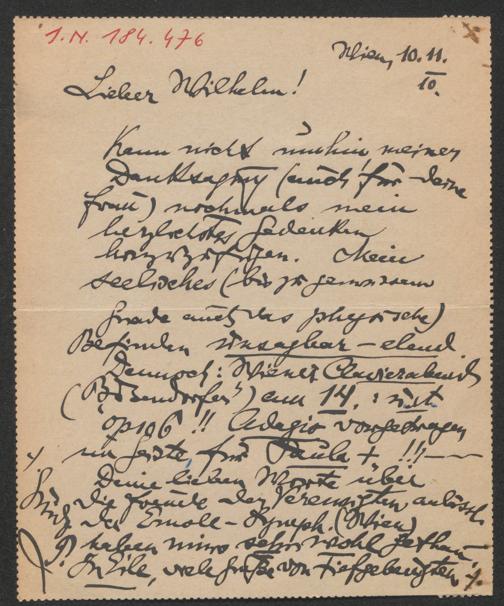 I.N. 184.476
Wien, 10.11.
10.
Lieber Wilhelm!
Kann nicht umhin, meiner
Danksagung (auch für deine
Frau) nochmals mein
herzlichstes Gedenken
hinzuzufügen. Mein
seelisches (bis zu gewissem
Grade auch das physische)
Befinden unsagbar – elend
Dennoch: Wiener Clavierabend
("Bösendorfer") am 14. : mit
op 106 !! Adagio vorgetragen
im Geiste für Paula + !!! —
Deine lieben Worte über
die Freude der Verewigten anlässl.
der Emoll-Symph. (Wien)
haben mir sehr wohl gethan
In Eile, viele Grüße von Tiefgebeugten